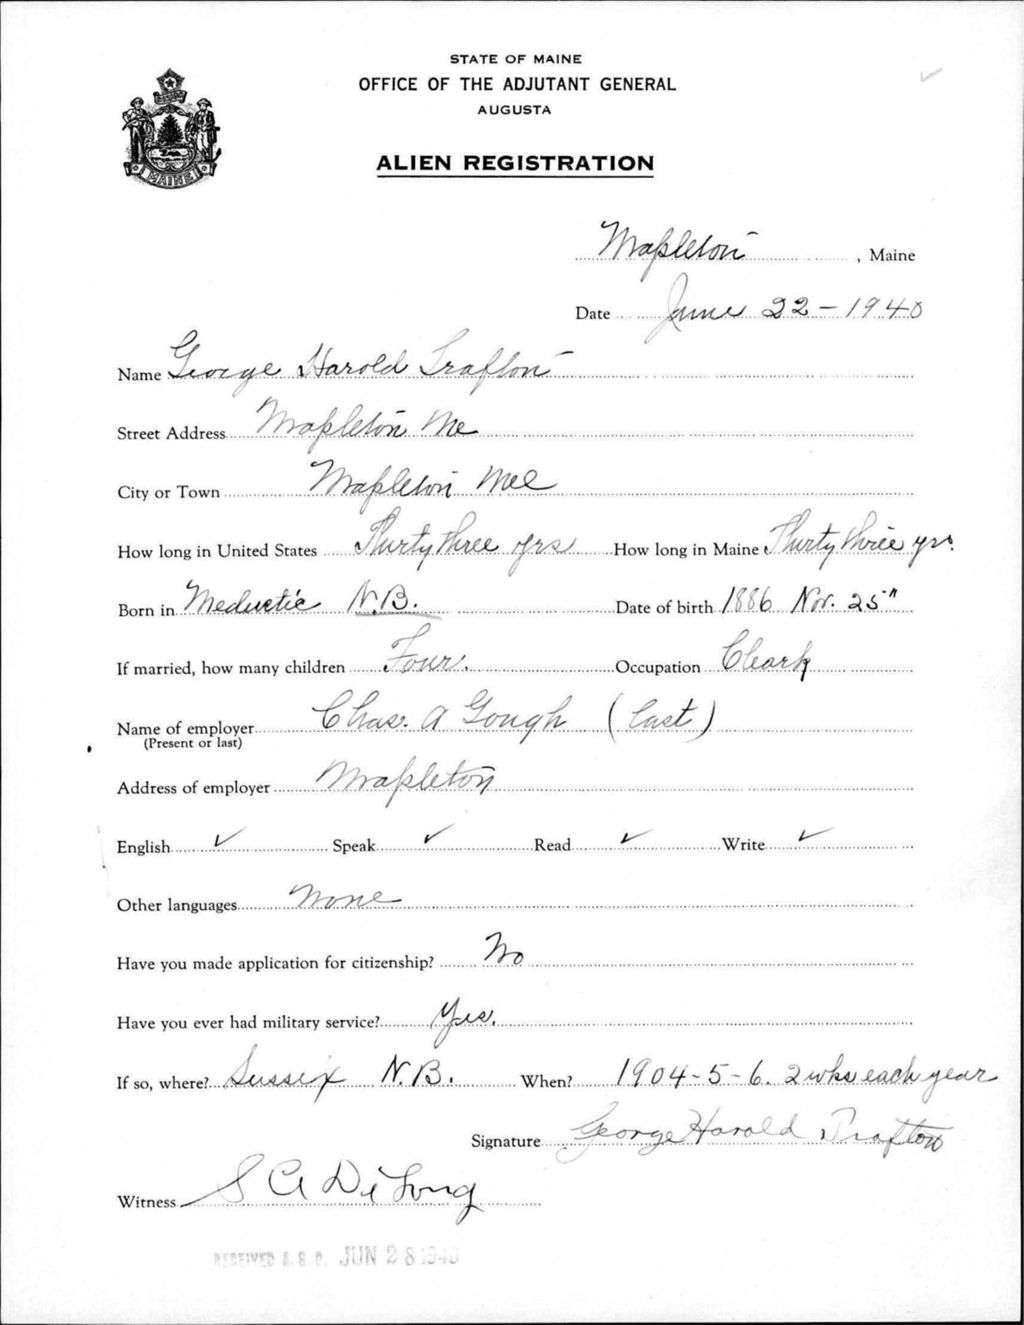 STATE OF MAINE
OFFICE OF THE ADJUTANT GENERAL
AUGUSTA
MAINE
ALIEN REGISTRATION
Mapleton, Maine
Date June 22-1940
Name George Harold Trafton
Street Address Mapleton Me
City or Town Mapleton Me
How long in United States Thirty three yrs How long in Maine Thirty three yrs.
Born in Meductic N.B. Date of birth 1886 Nov. 25"
If married, how many children Four. Occupation Cleark
Name of employer Chas. A Gough (last)
(Present or last)
Address of employer Mapleton
English ✓ Speak ✓ Read ✓ Write ✓
Other languages None
Have you made application for citizenship? No
Have you ever had military service? Yes.
If so, where? Sussex N.B. When? 1904-5-6. 2 wks each year
Signature George Harold Trafton
Witness S A DeLong
RECEIVED A.G.O. JUN 28 1940